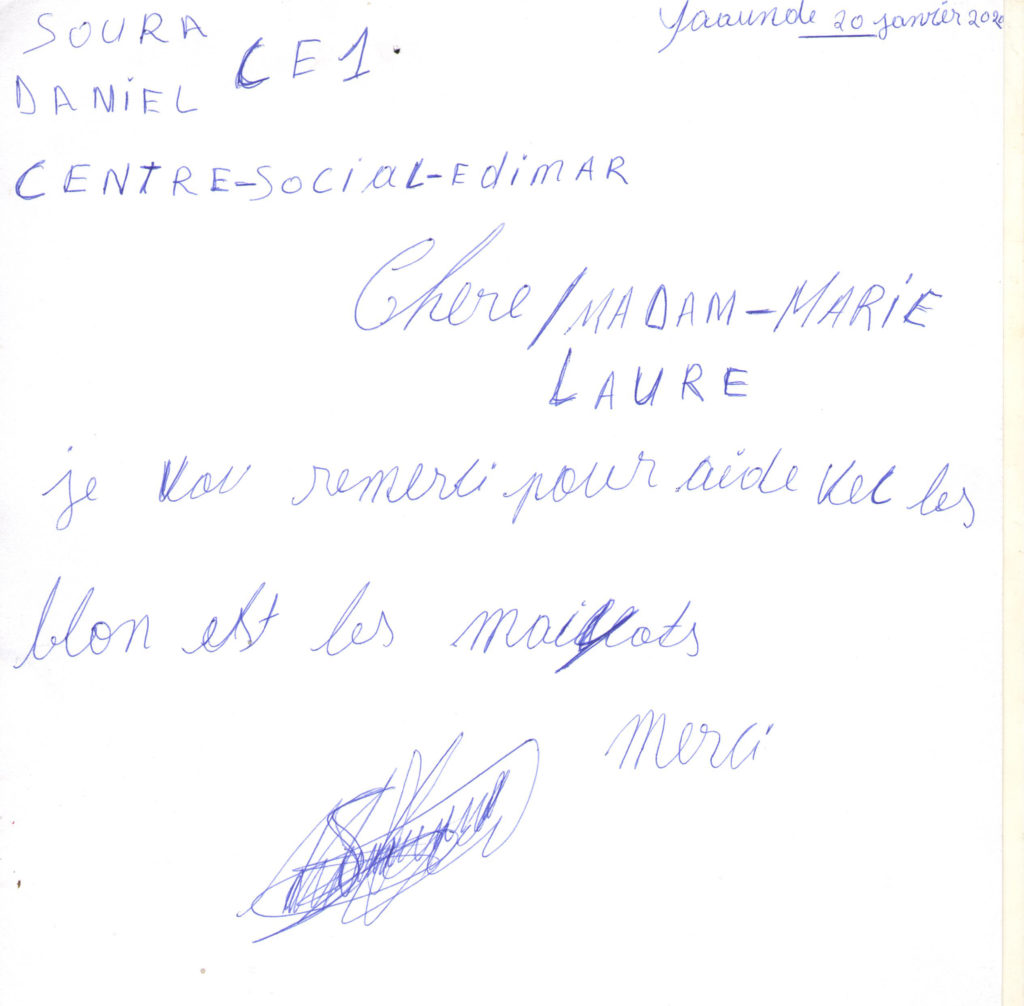 SOURA
DANiEL CE1.
Yaounde 20 janvier 202
CENTRE-SOCiaL-EdimAR
Chere/MADAM-MARiE
LAURE
je vou remerci pour aide vec les
blon est les maillots
Merci